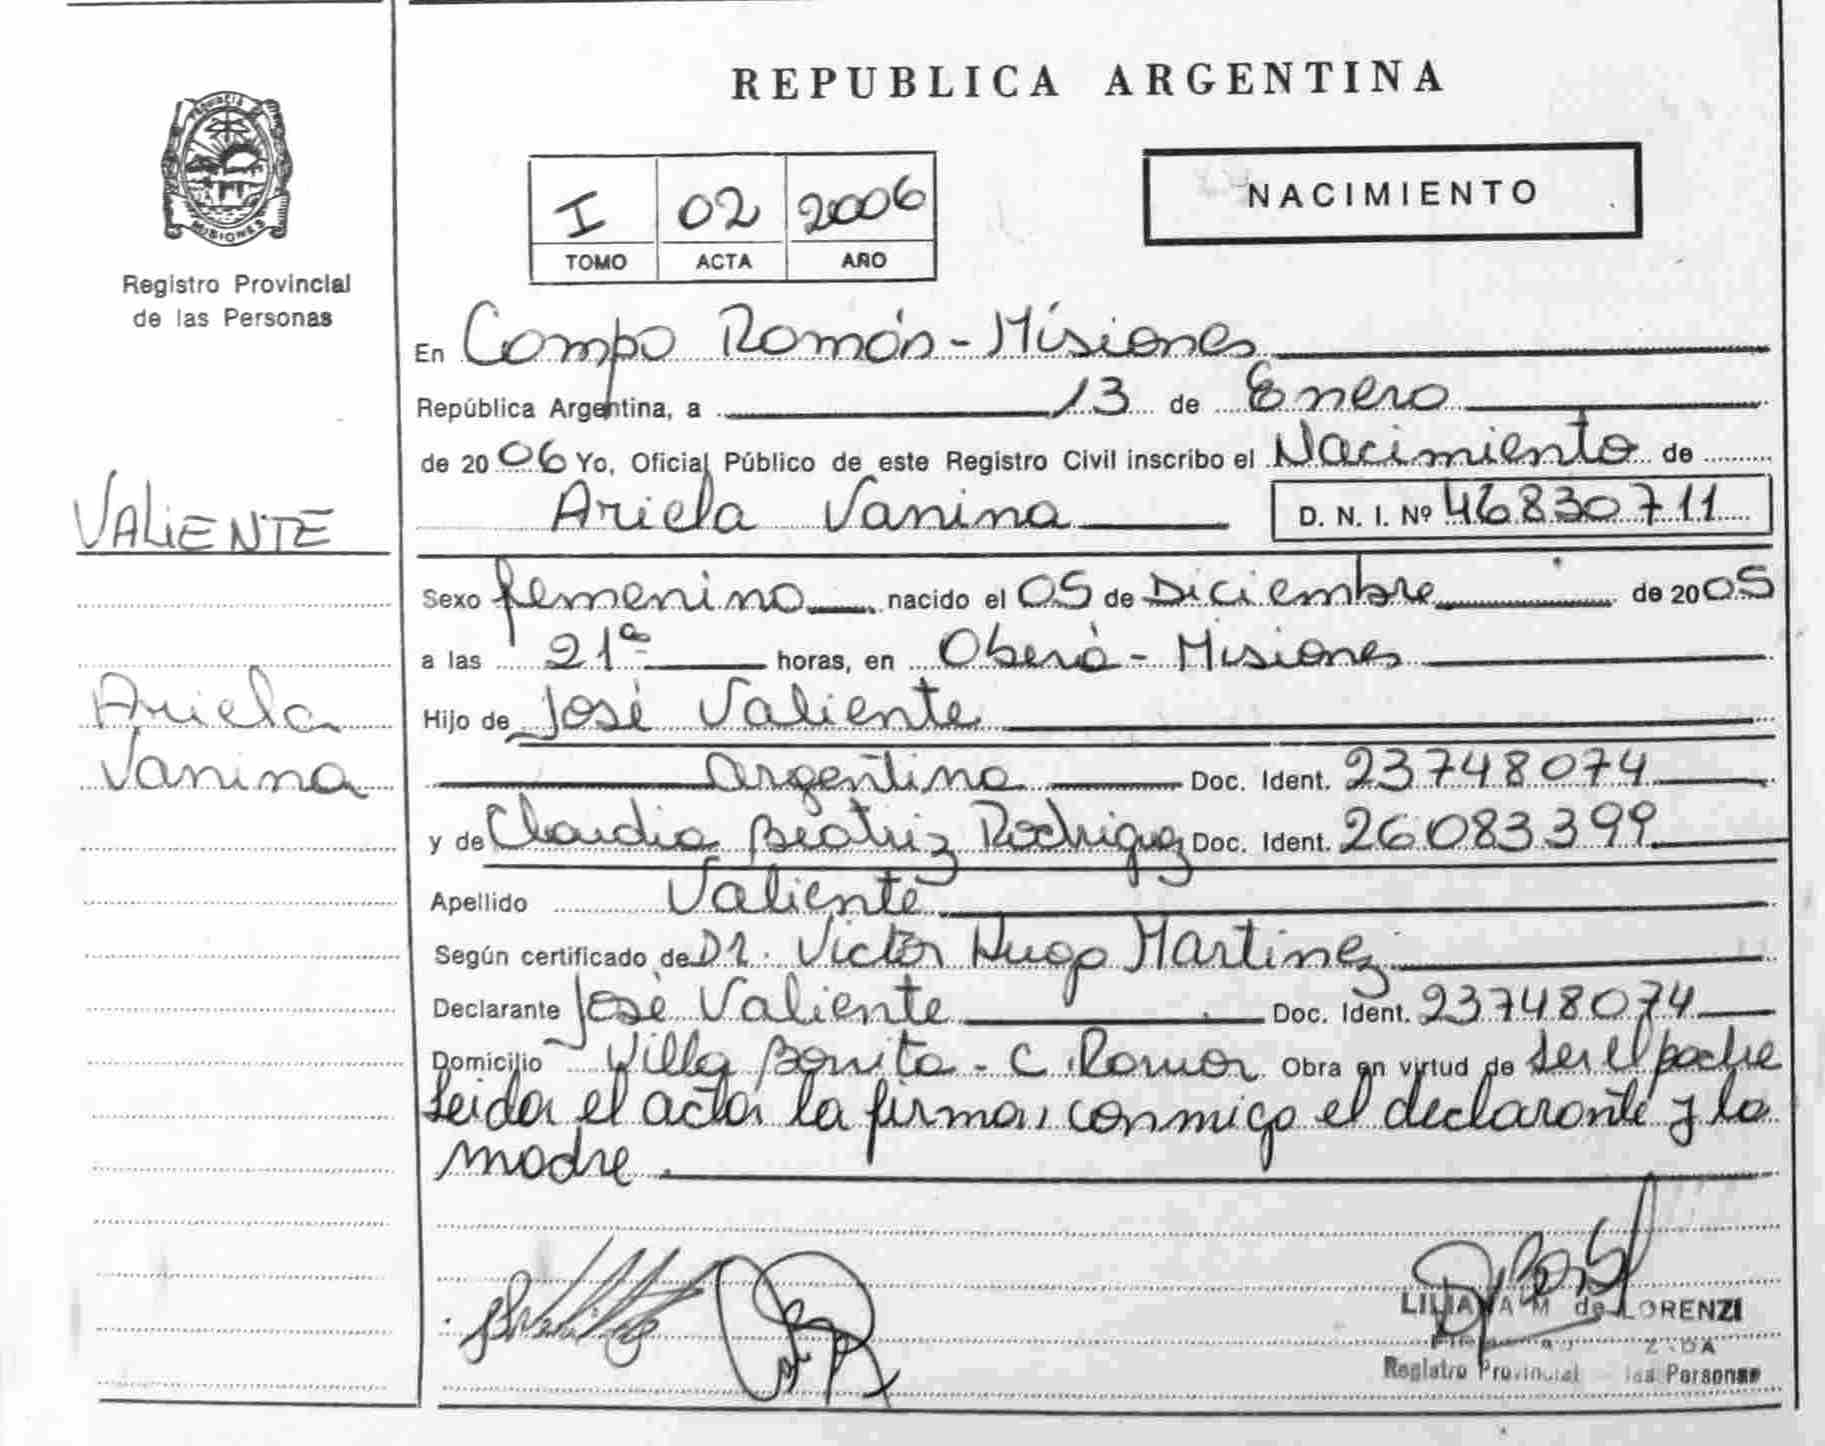 REPUBLICA ARGENTINA
PROVINCIA DE MISIONES
Registro Provincial
de las Personas
I 02 2006
TOMO ACTA AÑO
NACIMIENTO
En Campo Ramón - Misiones
República Argentina, a 13 de Enero
de 2006 Yo, Oficial Público de este Registro Civil inscribo el Nacimiento de
VALIENTE
Ariela Vanina D. N. I. Nº 46830711
Sexo femenino nacido el 05 de Diciembre de 2005
a las 21ª horas, en Oberá - Misiones
Ariela
Vanina
Hijo de José Valiente
argentino Doc. Ident. 23748074
y de Claudia Beatriz Rodriguez Doc. Ident. 26083399
Apellido Valiente
Según certificado de Dr. Victor Hugo Martinez
Declarante José Valiente Doc. Ident. 23748074
Domicilio Villa Bonita - C. Ramon Obra en virtud de ser el padre
Leida el acta la firma, conmigo el declarante y la
madre
LILIANA M de LORENZI
Registro Provincial las Personas